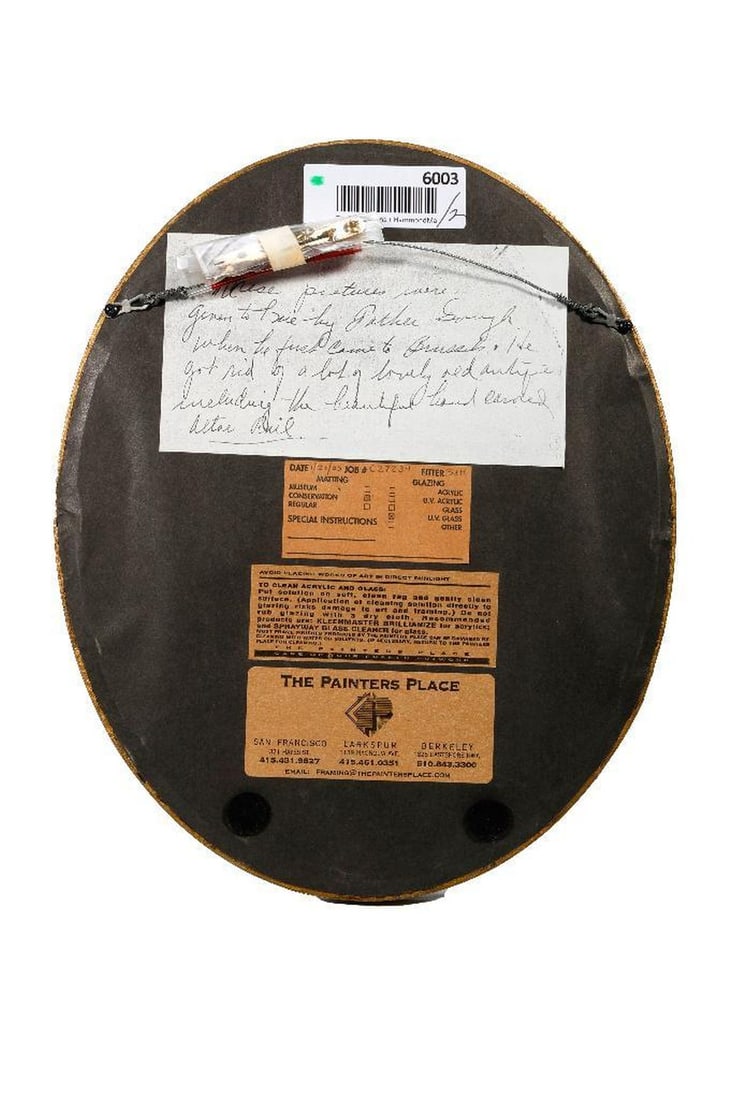 6003
/2
These pictures were
given to me by Father
when he first came to Brussels. He
got rid of a lot of lovely old antiques
including the beautiful hand carved
Altar Rail.
DATE JOB # FITTER
MATTING GLAZING
MUSEUM ACRYLIC
CONSERVATION U.V. ACRYLIC
REGULAR GLASS
U.V. GLASS
SPECIAL INSTRUCTIONS OTHER
AVOID PLACING WORKS OF ART IN DIRECT SUNLIGHT
TO CLEAN ACRYLIC AND GLASS:
Put solution on soft, clean rag and gently clean
surface. (Application of cleaning solution directly to
glazing risks damage to art and framing.) Do not
rub glazing with a dry cloth. Recommended
products are: KLEENMASTER BRILLIANIZE for acrylics;
and SPRAYWAY GLASS CLEANER for glass.
THE PAINTERS PLACE
THE PAINTERS PLACE
SAN FRANCISCO LARKSPUR BERKELEY
415.431.9827 415.461.0351 510.843.3300
EMAIL: FRAMING@THEPAINTERSPLACE.COM